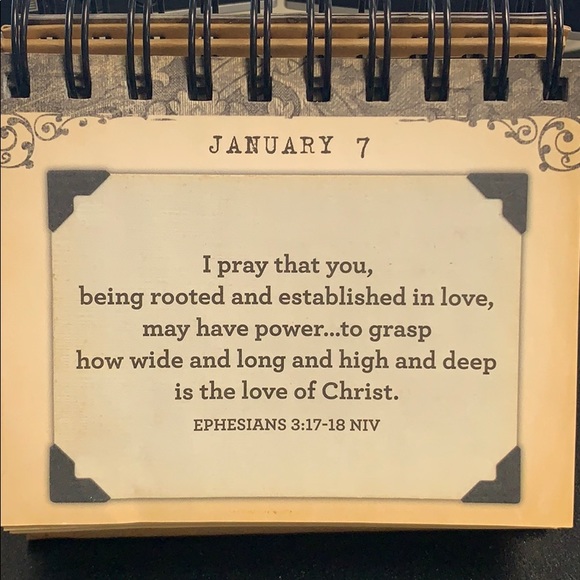 JANUARY 7
I pray that you,
being rooted and established in love,
may have power...to grasp
how wide and long and high and deep
is the love of Christ.
EPHESIANS 3:17-18 NIV